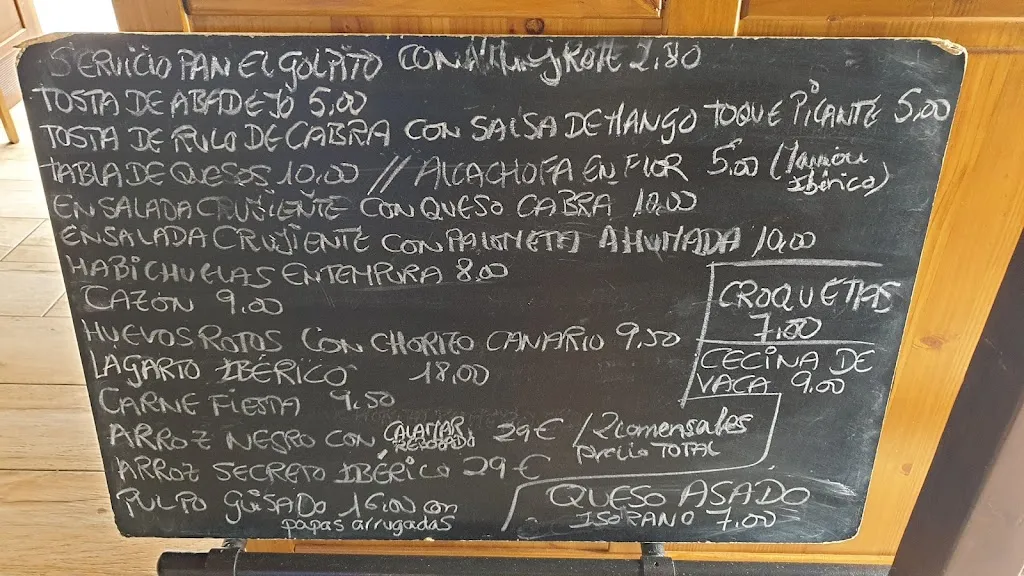 SERVICIO PAN EL GOLPITO CON Y 2,80
TOSTA DE ABADEJO 5,00
TOSTA DE RULO DE CABRA CON SALSA DE MANGO TOQUE PICANTE 5,00
TABLA DE QUESOS 10,00 // ALCACHOFA EN FLOR 5,00 (Jamón Ibérico)
ENSALADA CRUJIENTE CON QUESO CABRA 10,00
ENSALADA CRUJIENTE CON PALOMETA AHUMADA 10,00
HABICHUELAS EN TEMPURA 8,00
CAZON 9,00
CROQUETAS
7,00
HUEVOS ROTOS CON CHORIZO CANARIO 9,50
CECINA DE
VACA 9,00
LAGARTO IBÉRICO 18,00
CARNE FIESTA 9,50
ARROZ NEGRO CON CALAMAR REBOZADO 29€ / 2 comensales
precio TOTAL
ARROZ SECRETO IBÉRICO 29€
PULPO GUISADO 16,00 con
papas arrugadas
QUESO ASADO
ISORANO 7,00